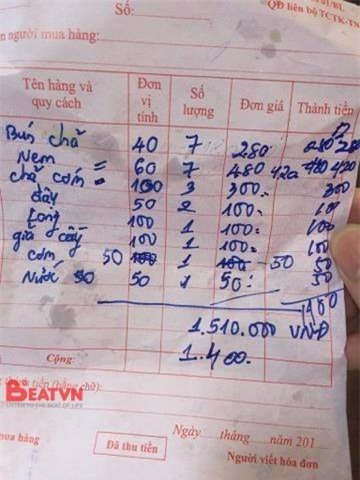 Số:
QĐ liên bộ TCTK-TN
n người mua hàng:
Tên hàng và quy cách Đơn vị tính Số lượng Đơn giá Thành tiền
Bún chả 40 7 280. 280
Nem = 60 7 480 420 480 420
chả cốm = 100 3 300 = 300
dây 50 2 100 = 100
Lòng 100 1 100 = 100
giả cầy 100 1 100 = 100
cơm 50 100 1 100 - 50 50
Nước 50 50 1 50 = 50
1400
1.510.000 VNĐ
1.400.
Cộng:
tiền (bằng chữ):
BEATVN
LISTEN TO THE BEAT OF LIFE
mua hàng
Đã thu tiền
Ngày tháng năm 201
Người viết hóa đơn